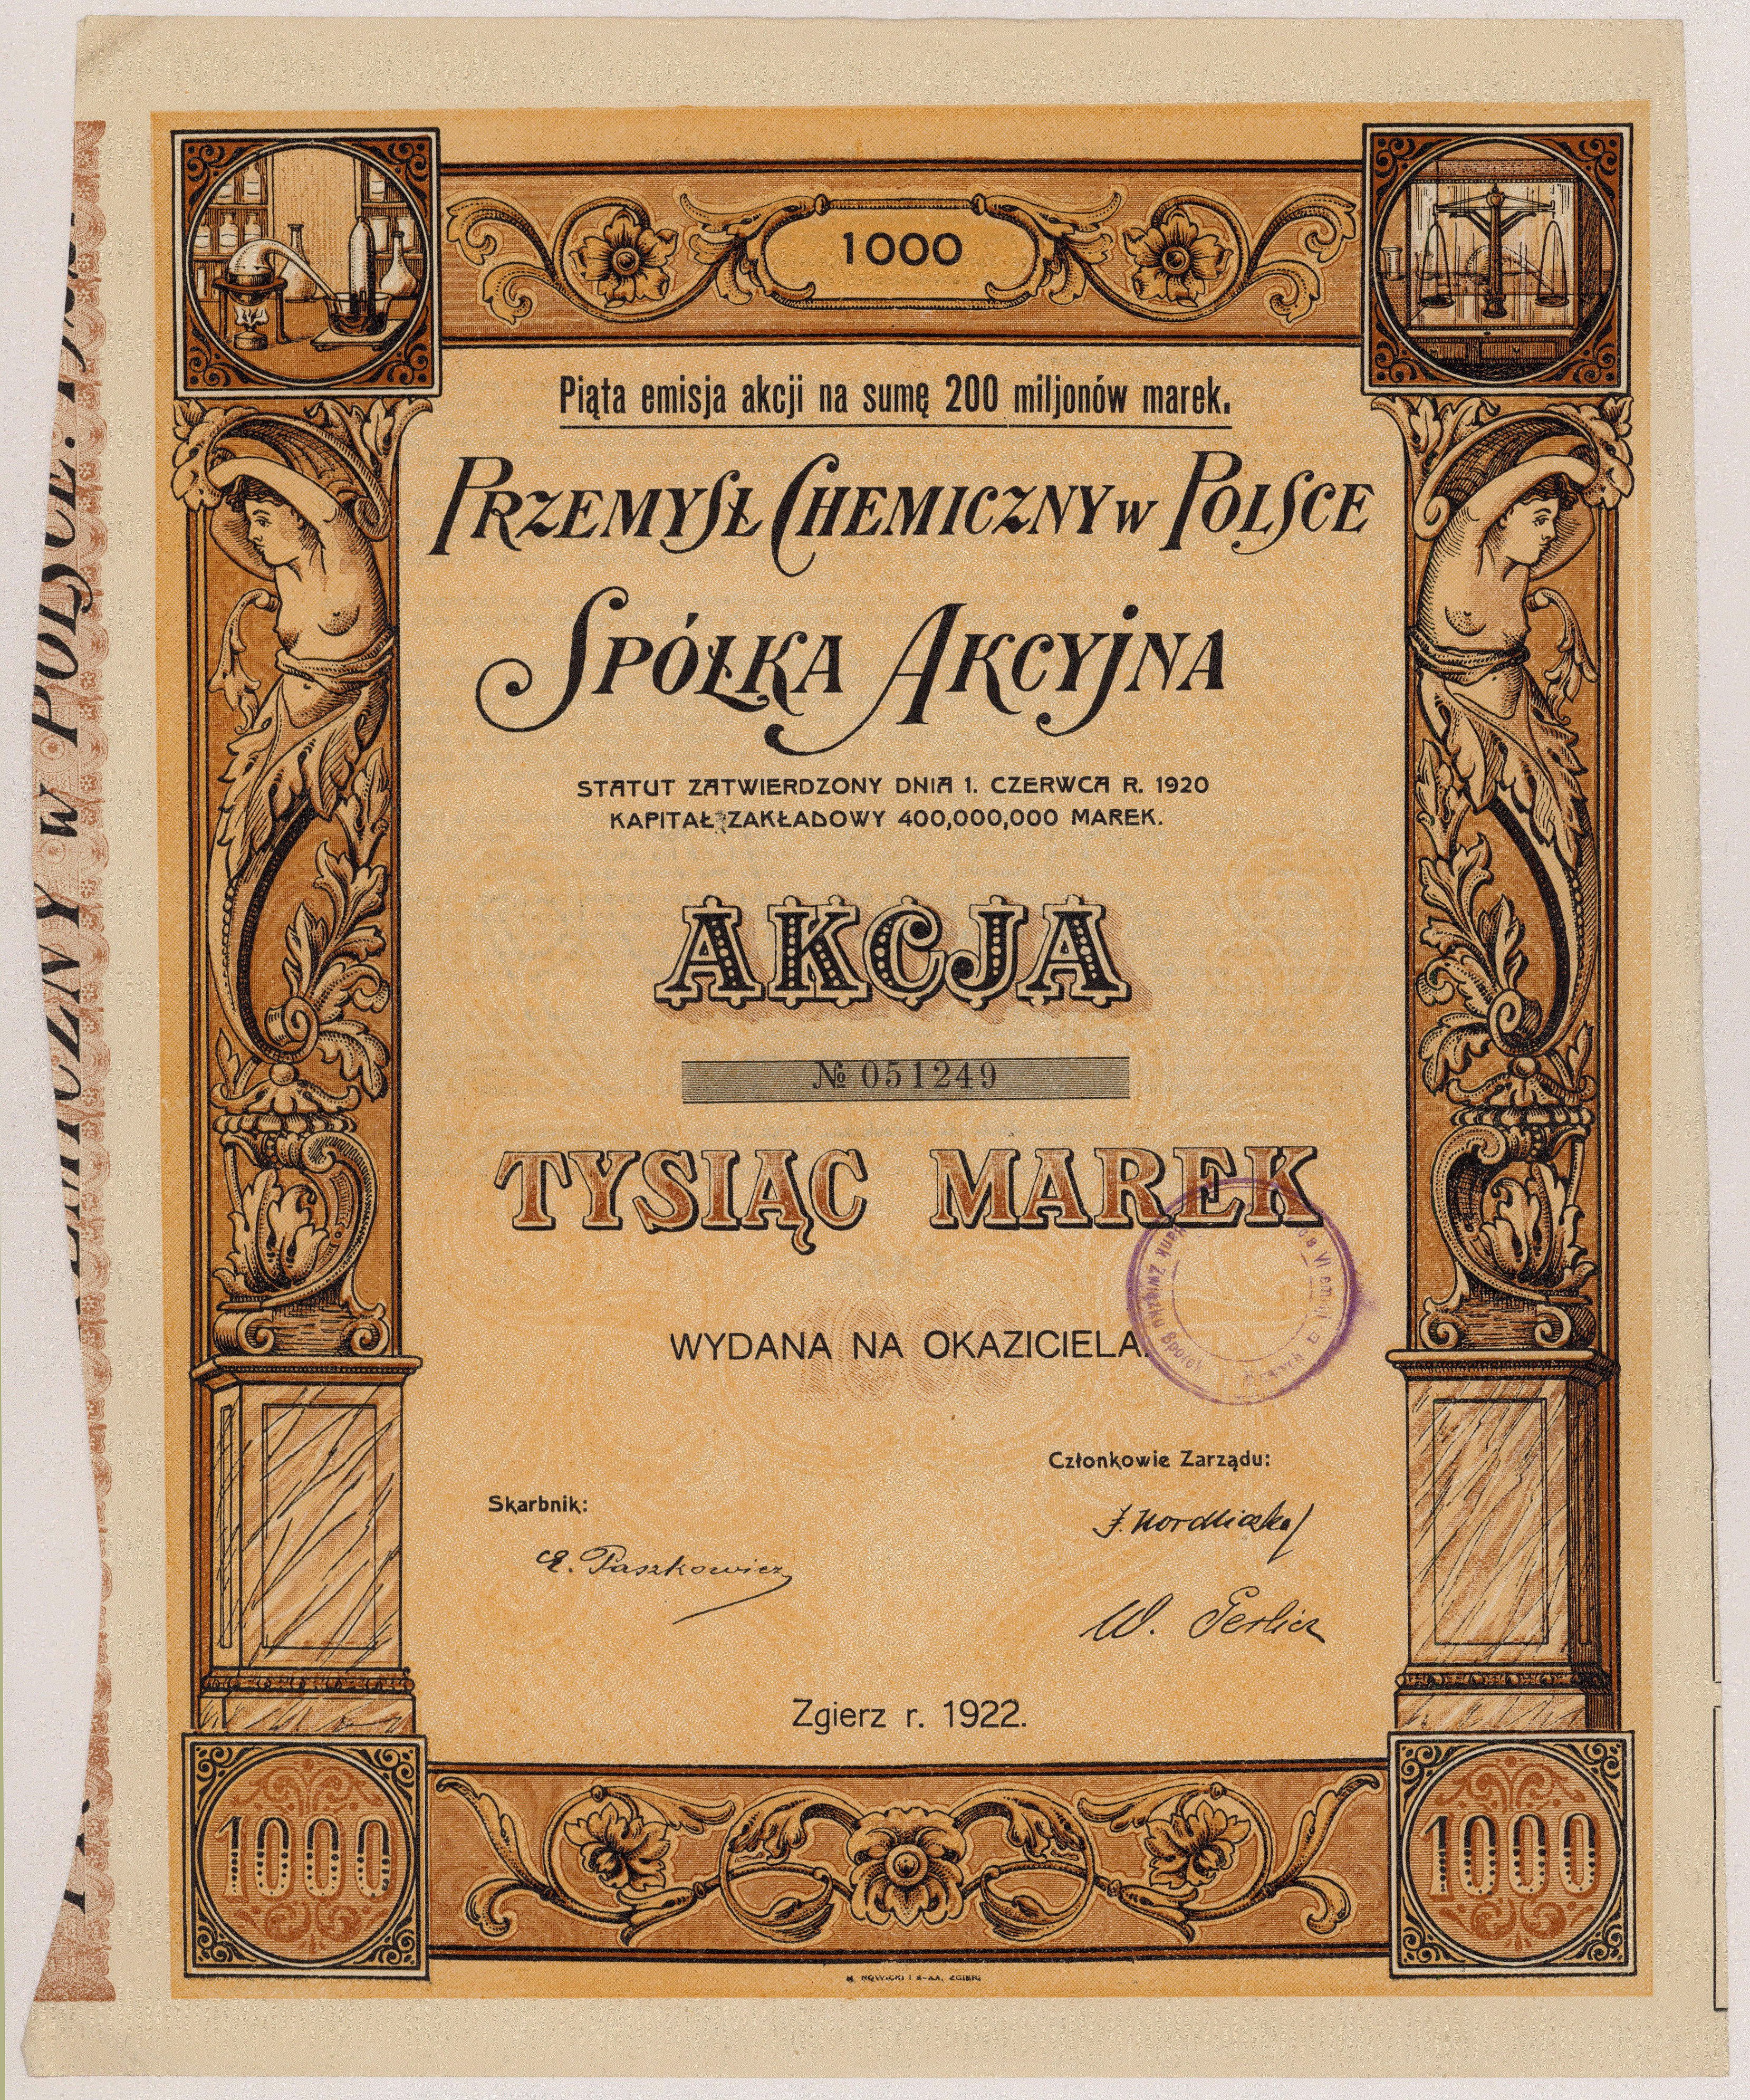 1000
Piąta emisja akcji na sumę 200 miljonów marek.
PRZEMYSŁ CHEMICZNY W POLSCE
SPÓŁKA AKCYJNA
STATUT ZATWIERDZONY DNIA 1. CZERWCA R. 1920
KAPITAŁ ZAKŁADOWY 400,000,000 MAREK.
AKCJA
№ 051249
TYSIĄC MAREK
WYDANA NA OKAZICIELA.
1000
Bank Związku Spółek
VI emisji
Członkowie Zarządu:
Skarbnik:
E. Paszkowicz
W. Gerlicz
Zgierz r. 1922.
1000
1000
M. NOWICKI I S-KA, ZGIERZ
W POLSCE.